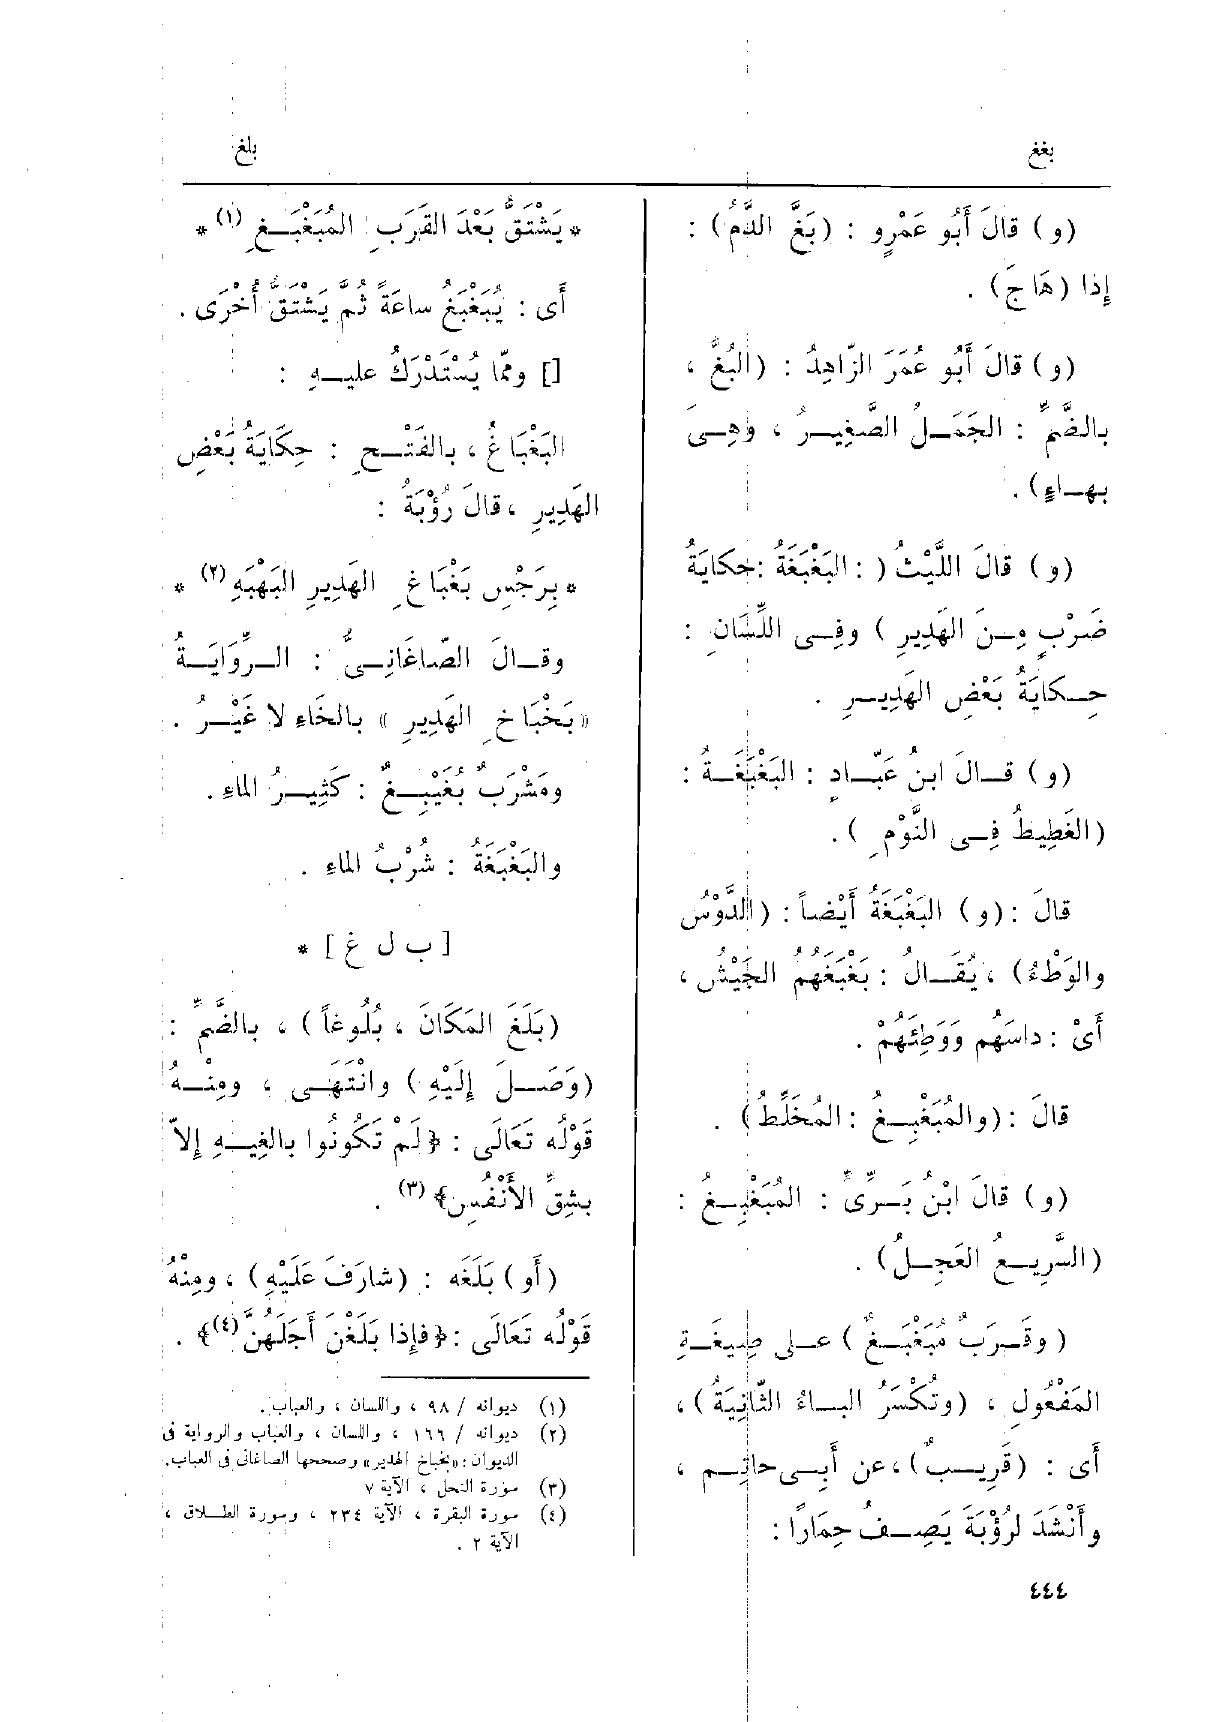 بغغ
بلغ
(و) قالَ أَبُو عَمْرٍو : (بَغَّ الدَّمُ) :
إذا (هَاجَ) .
(و) قالَ أَبُو عُمَرَ الزّاهِدُ : (البُغُّ ،
بالضَّمِّ : الجَمَـلُ الصَّغِيـرُ ، وَهِـىَ
بهـاءٍ) .
(و) قالَ اللَّيْثُ ( : البَغْبَغَةُ : حِكايَةُ
ضَرْبٍ مِـنَ الهَدِيرِ ) وفِـى اللِّسَانِ :
حِـكايَةُ بَعْضِ الهَدِيـرِ .
(و) قـالَ ابنُ عَبّـادٍ : البَغْبَغَـةُ :
(الغَطِيطُ فِـى النَّوْمِ ) .
قالَ : (و) البَغْبَغَةُ أَيْضاً : (الدَّوْسُ
والوَطْءُ) ، يُقَـالُ : بَغْبَغَهُمُ الجَيْشُ ،
أَىْ : داسَهُم وَوَطِئَهُمْ .
قالَ : (والمُبَغْبِـغُ : المُخَلِّطُ) .
(و) قالَ ابْنُ بَـرِّىٍّ : المُبَغْبِـغُ :
(السَّرِيـعُ العَجِـلُ) .
( وقَـرَبٌ مُبَغْبَـغٌ ) عـلى صِيغَـةِ
المَفْعُولِ ، (وتُكْسَرُ البـاءُ الثّانِيَةُ) ،
أَى : (قَرِيـبٌ) ، عن أَبِـى حاتِـم ،
وأَنْشَدَ لرُؤْبَةَ يَصِـفُ حِمَارًا :
* يَشْتَقُّ بَعْدَ القَرَبِ المُبَغْبَـغِ (١) *
أَى : يُبَغْبَغُ ساعَةً ثُمَّ يَشْتَقُّ أُخْرَى .
[] ومّا يُسْتَدْرَكُ عليـهِ :
البَغْبَاغُ ، بالفَتْـحِ : حِكَايَةُ بَعْضِ
الهَدِيرِ ، قالَ رُؤْبَةُ :
* بِرَجْسِ بَغْبَاغِ الهَدِيرِ البَهْبَهِ (٢) *
وقـالَ الصّاغَانِـىُّ : الـرِّوَايَـةُ
« بَخْبَاخِ الهَدِيرِ » بالخَاءِ لا غَيْـرُ .
ومَشْرَبٌ بُغَيْبِـغٌ : كَثِيـرُ الماءِ .
والبَغْبَغَةُ : شُرْبُ الماءِ .
[ ب ل غ ] *
(بَلَغَ المَكَانَ ، بُلُوغاً ) ، بالضَّمِّ :
(وَصَـلَ إِلَيْهِ ) وانْتَهَـى ، ومِنْـهُ
قَوْلُه تَعَالَى : ﴿ لَمْ تَكُونُوا بالغِيـهِ إلاّ
بشِقِّ الأَنْفُسِ﴾ (٣) .
(أَو) بَلَغَه : (شارَفَ عَلَيْهِ) ، ومِنْهُ
قَوْلُه تَعَالَى : ﴿ فإِذا بَلَغْنَ أَجَلَهُنَّ (٤)﴾ .
(١) ديوانه / ٩٨ ، واللسان ، والعباب .
(٢) ديوانه / ١٦٦ ، واللسان ، والعباب والرواية فى
الديوان : «بخباخ الهدير» وصححها الصاغانى فى العباب.
(٣) سورة النحل ، الآية ٧
(٤) سورة البقرة ، الآية ٢٣٤ ، وسورة الطـلاق ،
الآية ٢ .
٤٤٤